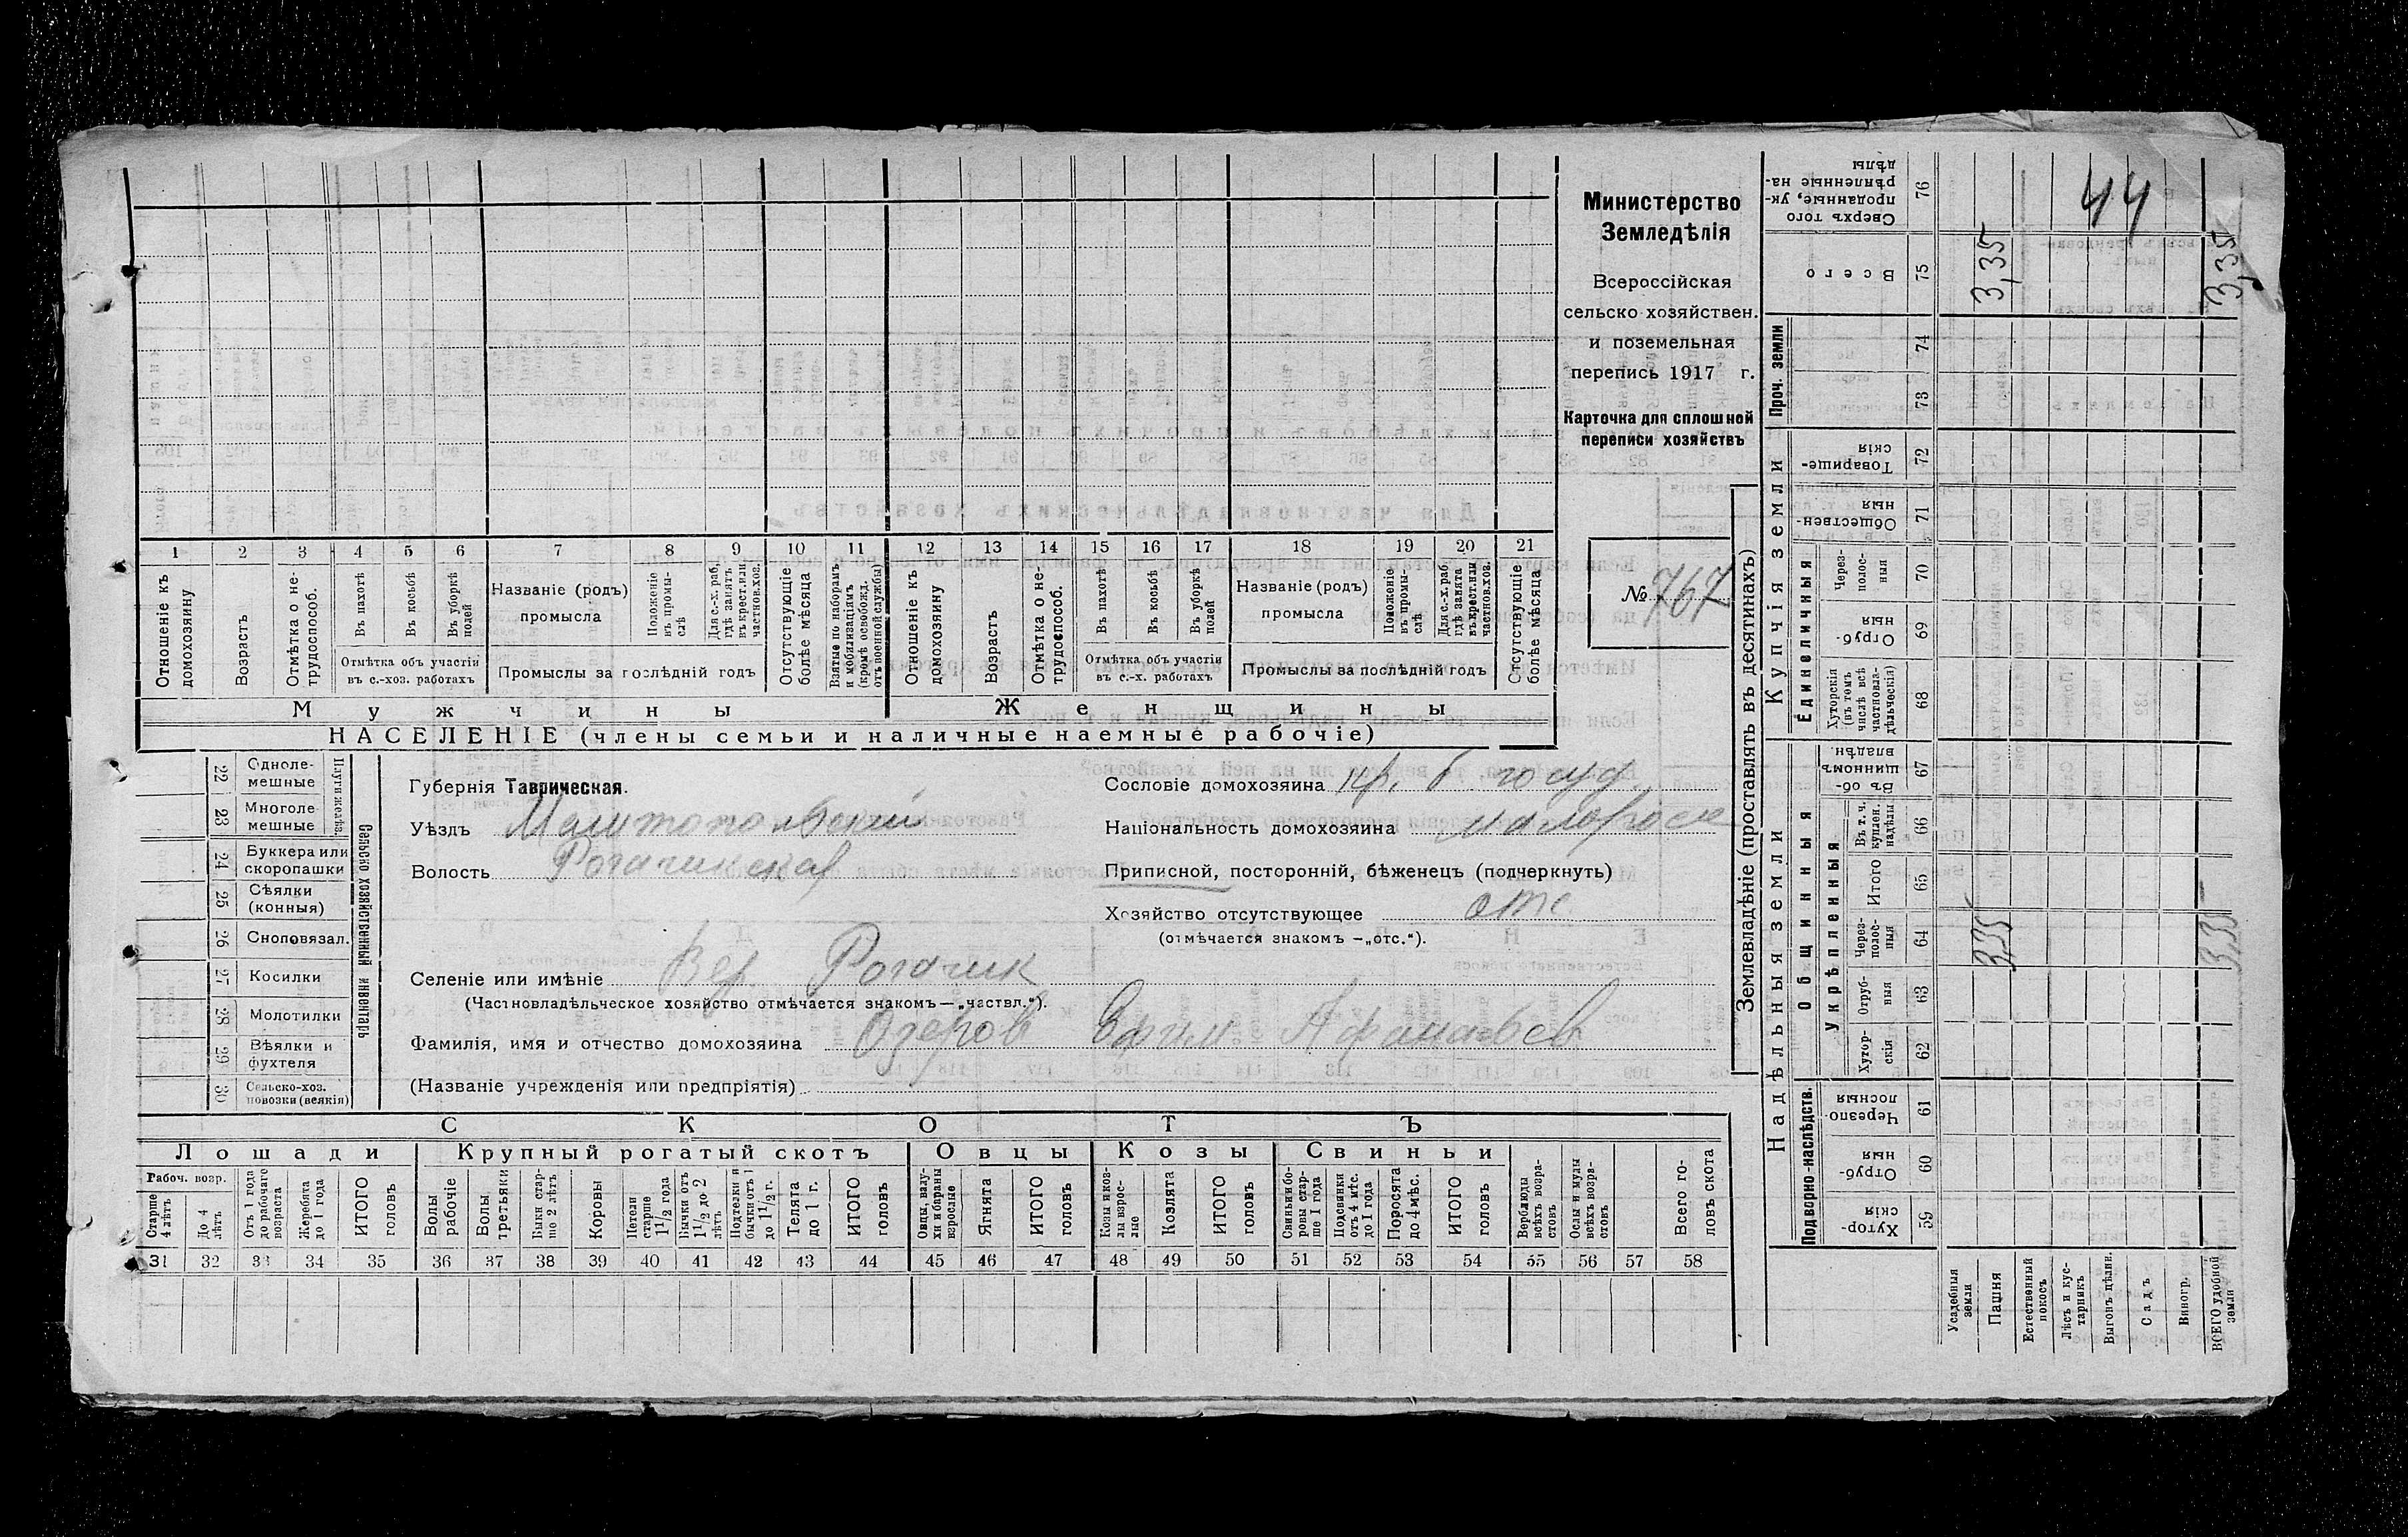 Министерство
Земледѣлія
Всероссійская
сельско хозяйствен.
и поземельная
перепись 1917 г.
Карточка для сплошной
переписи хозяйствъ
№ 767
1 2 3 4 5 6 7 8 9 10 11 12 13 14 15 16 17 18 19 20 21
Отношеніе къ домохозяину
Возрастъ
Отмѣтка о не-трудоспособ.
Въ пахотѣ
Въ косьбѣ
Въ уборкѣ полей
Отмѣтка объ участіи въ с.-хоз. работахъ
Названіе (родъ) промысла
Положеніе въ промы-слѣ
Для с.-х. раб. гдѣ занятъ въ крест. или частнов. хоз.
Промыслы за послѣдній годъ
Отсутствующіе болѣе мѣсяца
Взятые по наборамъ и мобилизаціямъ (кромѣ освобожд. отъ военной службы)
Отношеніе къ домохозяину
Возрастъ
Отмѣтка о не-трудоспособ.
Въ пахотѣ
Въ косьбѣ
Въ уборкѣ полей
Отмѣтка объ участіи въ с.-х. работахъ
Названіе (родъ) промысла
Положеніе въ промы-слѣ
Для с.-х. раб. гдѣ занята въ крест. или частнов. хоз.
Промыслы за послѣдній годъ
Отсутствующіе болѣе мѣсяца
Мужчины
Женщины
НАСЕЛЕНІЕ (члены семьи и наличные наемные рабочіе)
22 Одноле-мешные
23 Многоле-мешные
Плуги желѣз.
24 Буккера или скоропашки
25 Сѣялки (конныя)
26 Сноповязал.
27 Косилки
28 Молотилки
29 Вѣялки и фухтеля
30 Сельско-хоз. повозки (всякія)
Сельско хозяйственный инвентарь
Губернія Таврическая.
Уѣздъ Мелитопольскій
Волость Рогачикская
Селеніе или имѣніе Вер. Рогачик
(Частновладѣльческое хозяйство отмѣчается знакомъ—„частвл.“).
Фамилія, имя и отчество домохозяина Озеров Ефим Афанасьев
(Названіе учрежденія или предпріятія)
Сословіе домохозяина кр. б. госуд.
Національность домохозяина малоросс
Приписной, посторонній, бѣженецъ (подчеркнуть)
Хозяйство отсутствующее отс.
(отмѣчается знакомъ —„отс.“).
СКОТЪ
Лошади
Крупный рогатый скотъ
Овцы
Козы
Свиньи
Рабоч. возр.
Старше 4 лѣтъ
До 4 лѣтъ
Отъ 1 года до рабочаго возраста
Жеребята до 1 года
ИТОГО головъ
Волы рабочіе
Волы третьяки
Быки стар-ше 2 лѣтъ
Коровы
Нетели старше 1 1/2 года
Бычки отъ 1 1/2 до 2 лѣтъ
Подтелки и бычки отъ 1 до 1 1/2 г.
Телята до 1 г.
ИТОГО головъ
Овцы, валу-хи и бараны взрослые
Ягнята
ИТОГО головъ
Козы и коз-лы взрос-лые
Козлята
ИТОГО головъ
Свиньи и бо-ровы стар-ше 1 года
Подсвинки отъ 4 мѣс. до 1 года
Поросята до 4 мѣс.
ИТОГО головъ
Верблюды всѣхъ возра-стовъ
Ослы и мулы всѣхъ возра-стовъ
Всего го-ловъ скота
31 32 33 34 35 36 37 38 39 40 41 42 43 44 45 46 47 48 49 50 51 52 53 54 55 56 57 58
Землевладѣніе (проставлять въ десятинахъ)
Сверхъ того проданные, ук-рѣпленные на-дѣлы 76
44
Всего 75 3,35 3,35
Проч. земли 74
73
Купчія земли
Товарище-скія 72
Обществен-ныя 71
Единеличныя
Через-полос-ныя 70
Отруб-ныя 69
Хуторскія (въ томъ числѣ всѣ частновла-дѣльческія) 68
Надѣльныя земли
Общинныя
Въ об-щинномъ владѣн. 67
Укрѣпленныя
Въ т. ч. куплен. надѣлы 66
Итого 65
Через-полос-ныя 64 3,35 3,35
Отруб-ныя 63
Хутор-скія 62
Подворно-наслѣдств.
Черезпо-лосныя 61
Отруб-ныя 60
Хутор-скія 59
Усадебныя земли
Пашня
Естественный покосъ
Лѣсъ и кус-тарникъ
Выгонъ цѣлин.
Садъ
Виногр.
ВСЕГО удобной земли